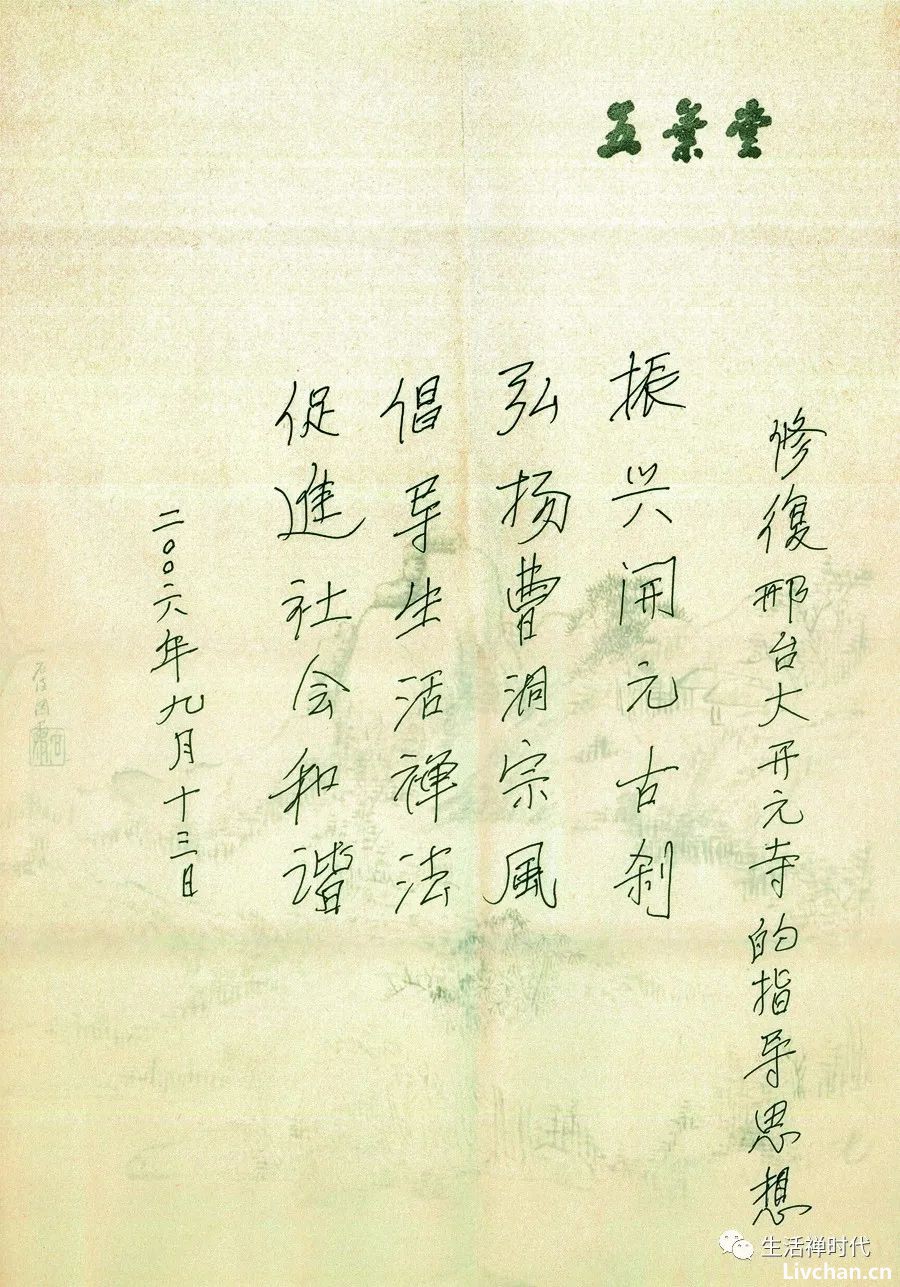 五葉堂
修復邢台大开元寺的指导思想
振兴開元古刹
弘扬曹洞宗風
倡导生活禅法
促進社会和谐
二〇〇六年九月十三日
生活禅时代
Livchan.cn